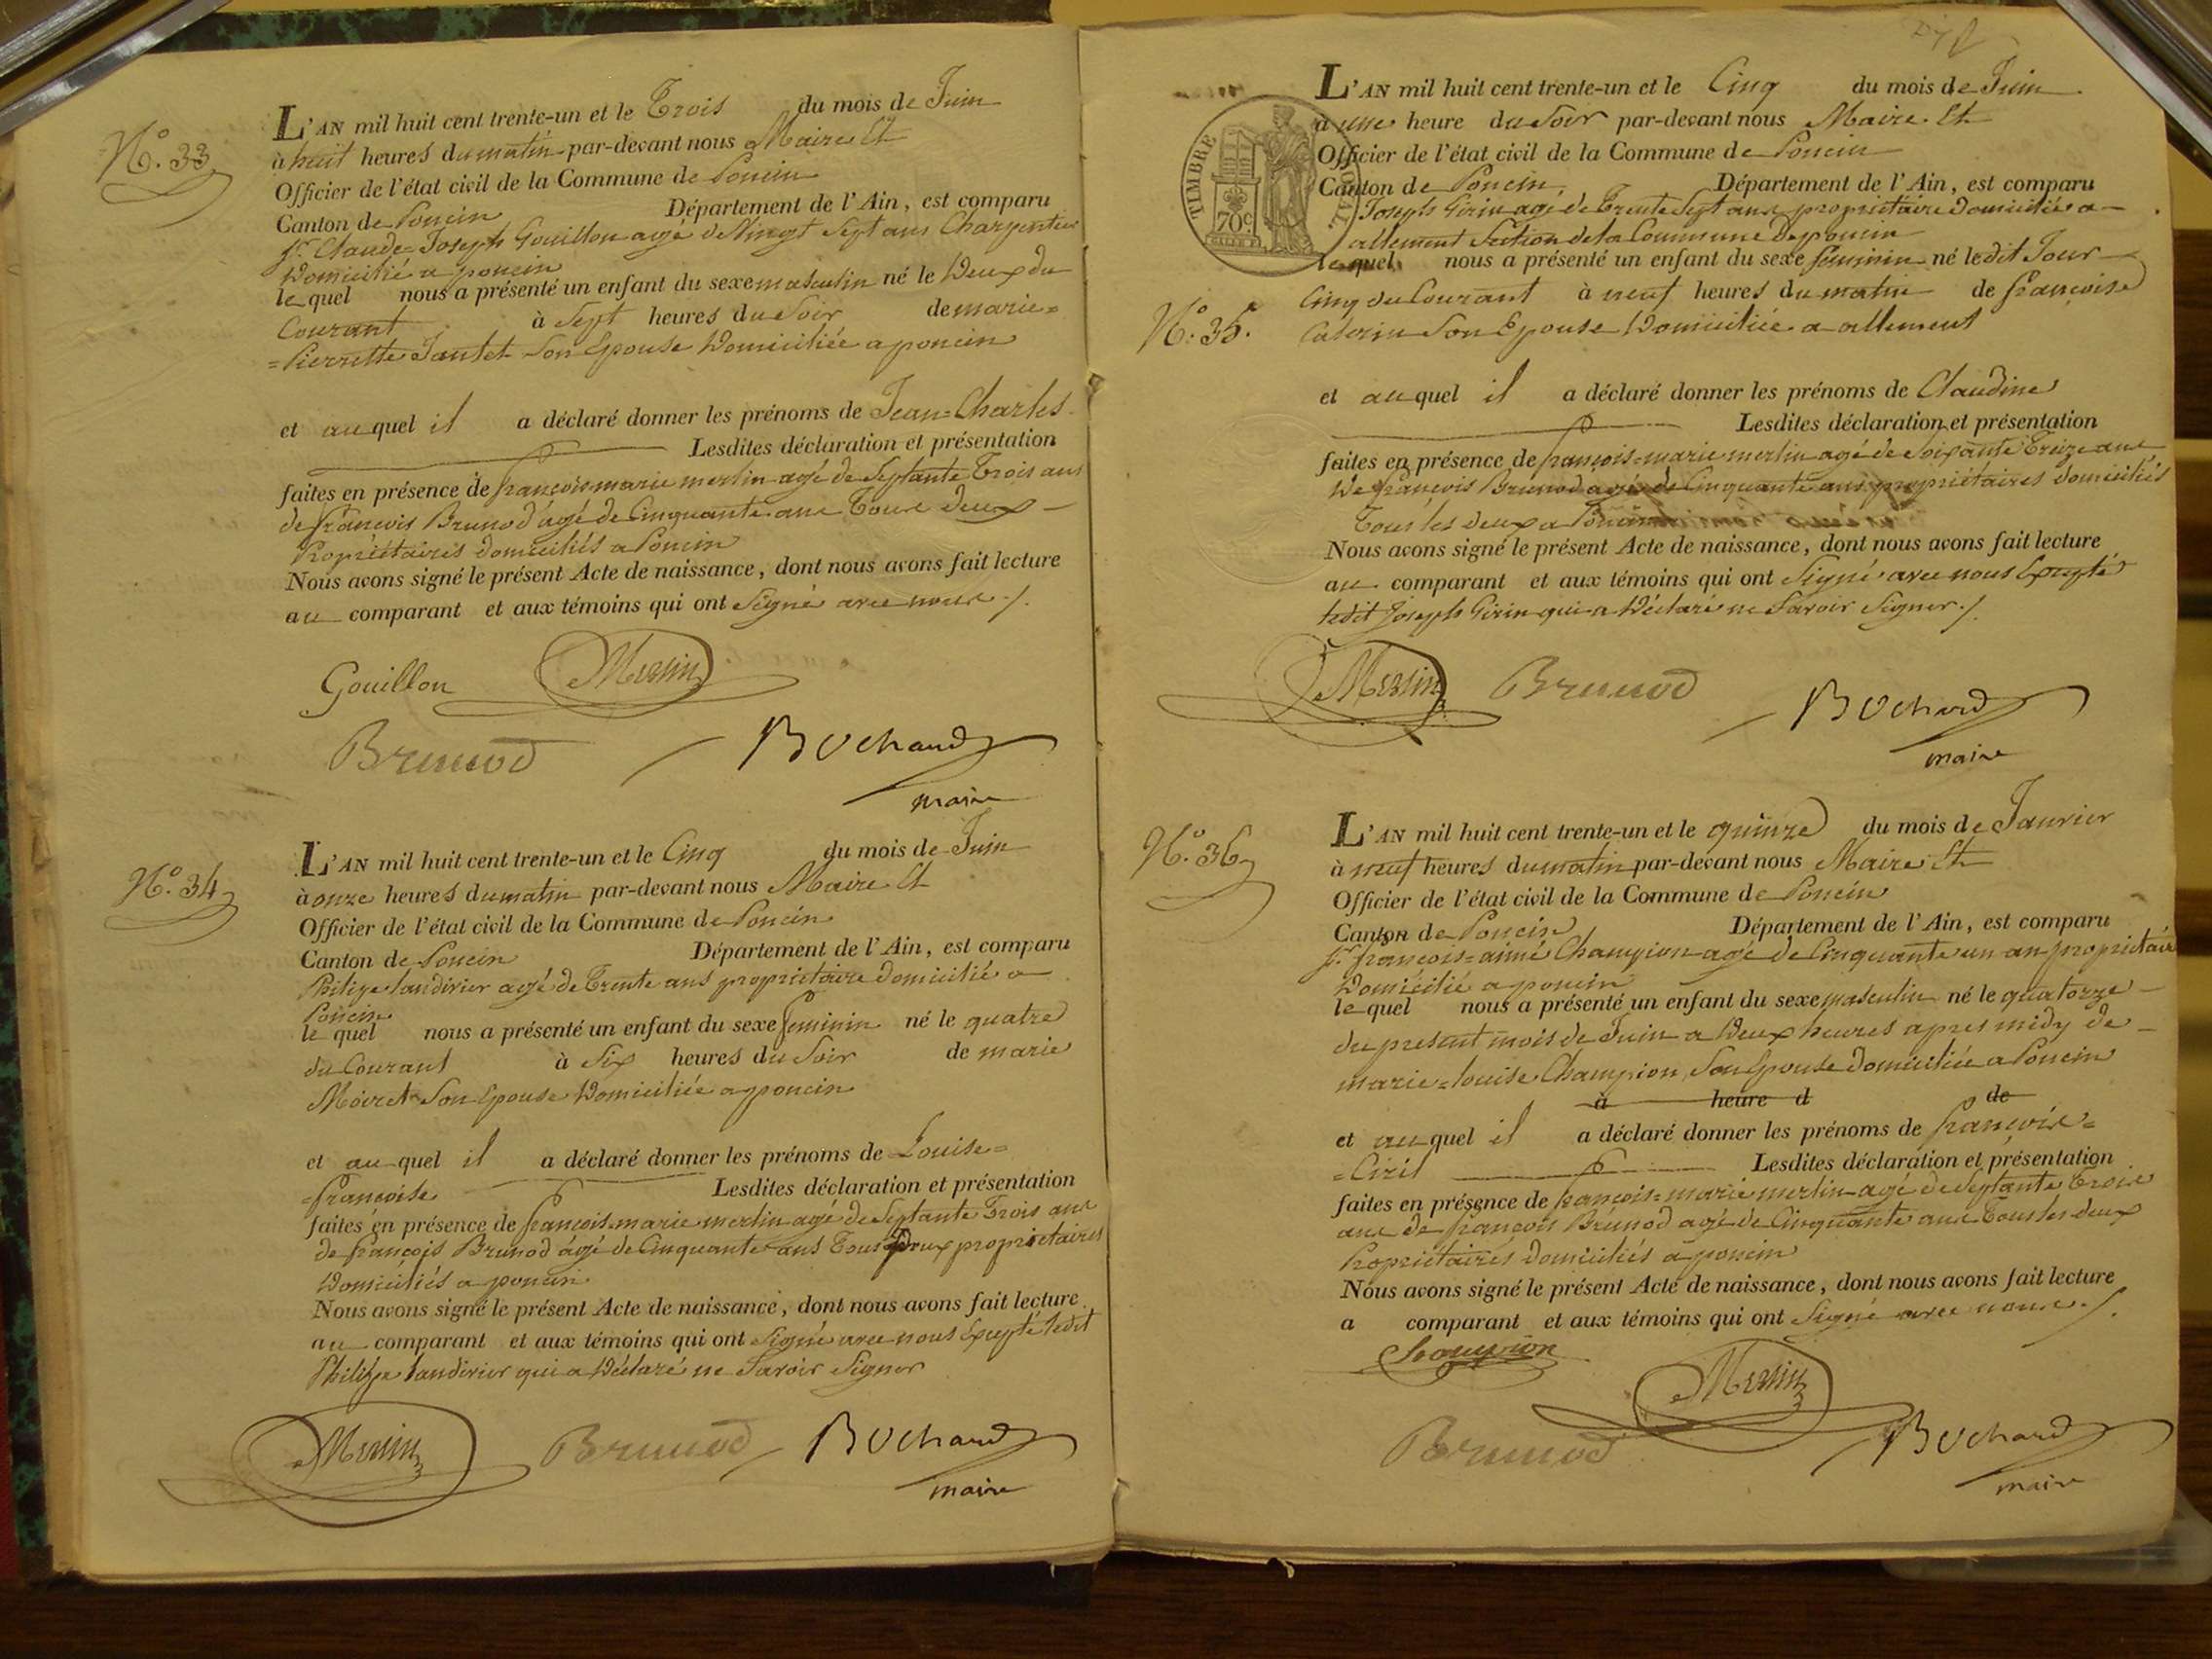 N.° 33
L'AN mil huit cent trente-un et le Trois du mois de Juin
à huit heures du matin par-devant nous Maire Et
Officier de l'état civil de la Commune de Poncin
Canton de Poncin Département de l'Ain, est comparu
Sr. Claude=Joseph Gouillon agé de Vingt Sept ans Charpentier
Domicilié a poncin
lequel nous a présenté un enfant du sexe masculin né le Deux du
Courant à Sept heures du Soir de marie=
=Pierrette Jantet Son Epouse Domiciliée a poncin
et auquel il a déclaré donner les prénoms de Jean=Charles
Lesdites déclaration et présentation
faites en présence de françois marie merlin agé de Septante Trois ans
de françois Brunod agé de Cinquante ans Tous deux
Propriétaires domiciliés a Poncin
Nous avons signé le présent Acte de naissance, dont nous avons fait lecture
au comparant et aux témoins qui ont Signé avec nous ./.
Gouillon Merlin
Brunod Bochard
maire
N.° 34
L'AN mil huit cent trente-un et le Cinq du mois de Juin
à onze heures du matin par-devant nous Maire Et
Officier de l'état civil de la Commune de Poncin
Canton de Poncin Département de l'Ain, est comparu
Philipe landirier agé de Trente ans proprietaire domicilié a
Poncin
lequel nous a présenté un enfant du sexe feminin né le quatre
du Courant à Six heures du Soir de marie
Moiret Son Epouse Domiciliée a poncin
et auquel il a déclaré donner les prénoms de Louise=
=françoise Lesdites déclaration et présentation
faites en présence de françois marie merlin agé de Septante Trois ans
de françois Brunod âgé de Cinquante ans Tous Deux proprietaires
Domiciliés a poncin
Nous avons signé le présent Acte de naissance, dont nous avons fait lecture
au comparant et aux témoins qui ont Signé avec nous Excepté ledit
Philipe landirier qui a Déclaré ne Savoir Signer
Merlin Brunod Bochard
maire
TIMBRE ROYAL
70c.
N.° 35.
L'AN mil huit cent trente-un et le Cinq du mois de Juin
à une heure du Soir par-devant nous Maire Et
Officier de l'état civil de la Commune de Poncin
Canton de Poncin, Département de l'Ain, est comparu
Joseph Girin agé de Trente Sept ans proprietaire domicilié a
allement Section de la Commune De poncin
lequel nous a présenté un enfant du sexe feminin né ledit Jour
Cinq du Courant à neuf heures du matin de françoise
Son Epouse Domiciliée a allement
et auquel il a déclaré donner les prénoms de Claudine
Lesdites déclaration et présentation
faites en présence de françois=marie merlin agé de Soixante Treize ans
De françois Brunod agé de Cinquante ans propriétaires domiciliés
Tous les deux a Poncin
Nous avons signé le présent Acte de naissance, dont nous avons fait lecture
au comparant et aux témoins qui ont Signé avec nous Excepté
ledit Joseph Girin qui a Déclaré ne Savoir Signer ./.
Merlin Brunod Bochard
maire
N.° 36
L'AN mil huit cent trente-un et le quinze du mois de Janvier
à neuf heures du matin par-devant nous Maire Et
Officier de l'état civil de la Commune de Poncin
Canton de Poncin Département de l'Ain, est comparu
Sr. françois=aimé Champion agé de Cinquante un an proprietaire
Domicilié a poncin
lequel nous a présenté un enfant du sexe masculin né le quatorze
du present mois de Juin a Deux heures apres midy de
marie=louise Champion Son Epouse domiciliée a Poncin
à heure d de
et auquel il a déclaré donner les prénoms de françois=
=Ciril Lesdites déclaration et présentation
faites en présence de françois=marie merlin agé de Septante Trois
ans de françois Brunod agé de Cinquante ans Tous les deux
Propriétaires domiciliés a poncin
Nous avons signé le présent Acte de naissance, dont nous avons fait lecture
a comparant et aux témoins qui ont Signé avec nous ./.
Champion Merlin
Brunod Bochard
maire